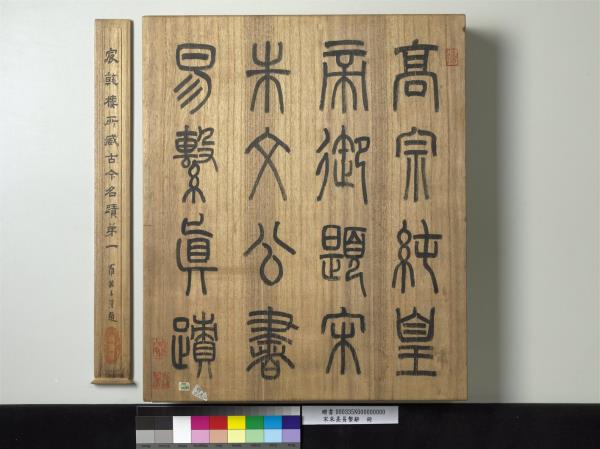 高宗純皇
帝御題宋
朱文公書
易繫眞蹟
宸翰樓所藏古今名蹟第一
贈書 000335N000000000
宋朱熹易繫辭 冊